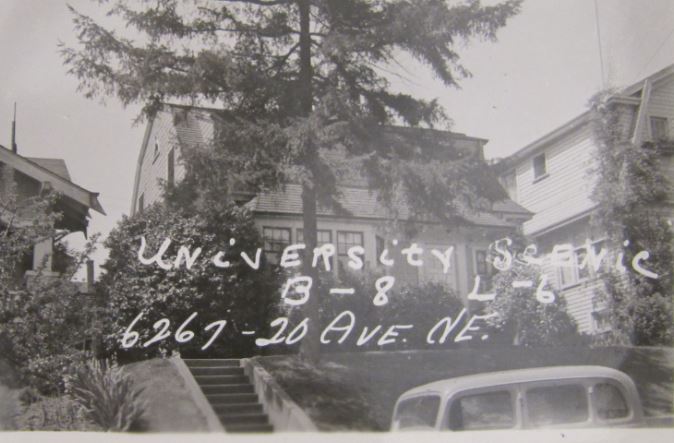 University Scenic
B-8 L-6
6267-20 Ave. NE.